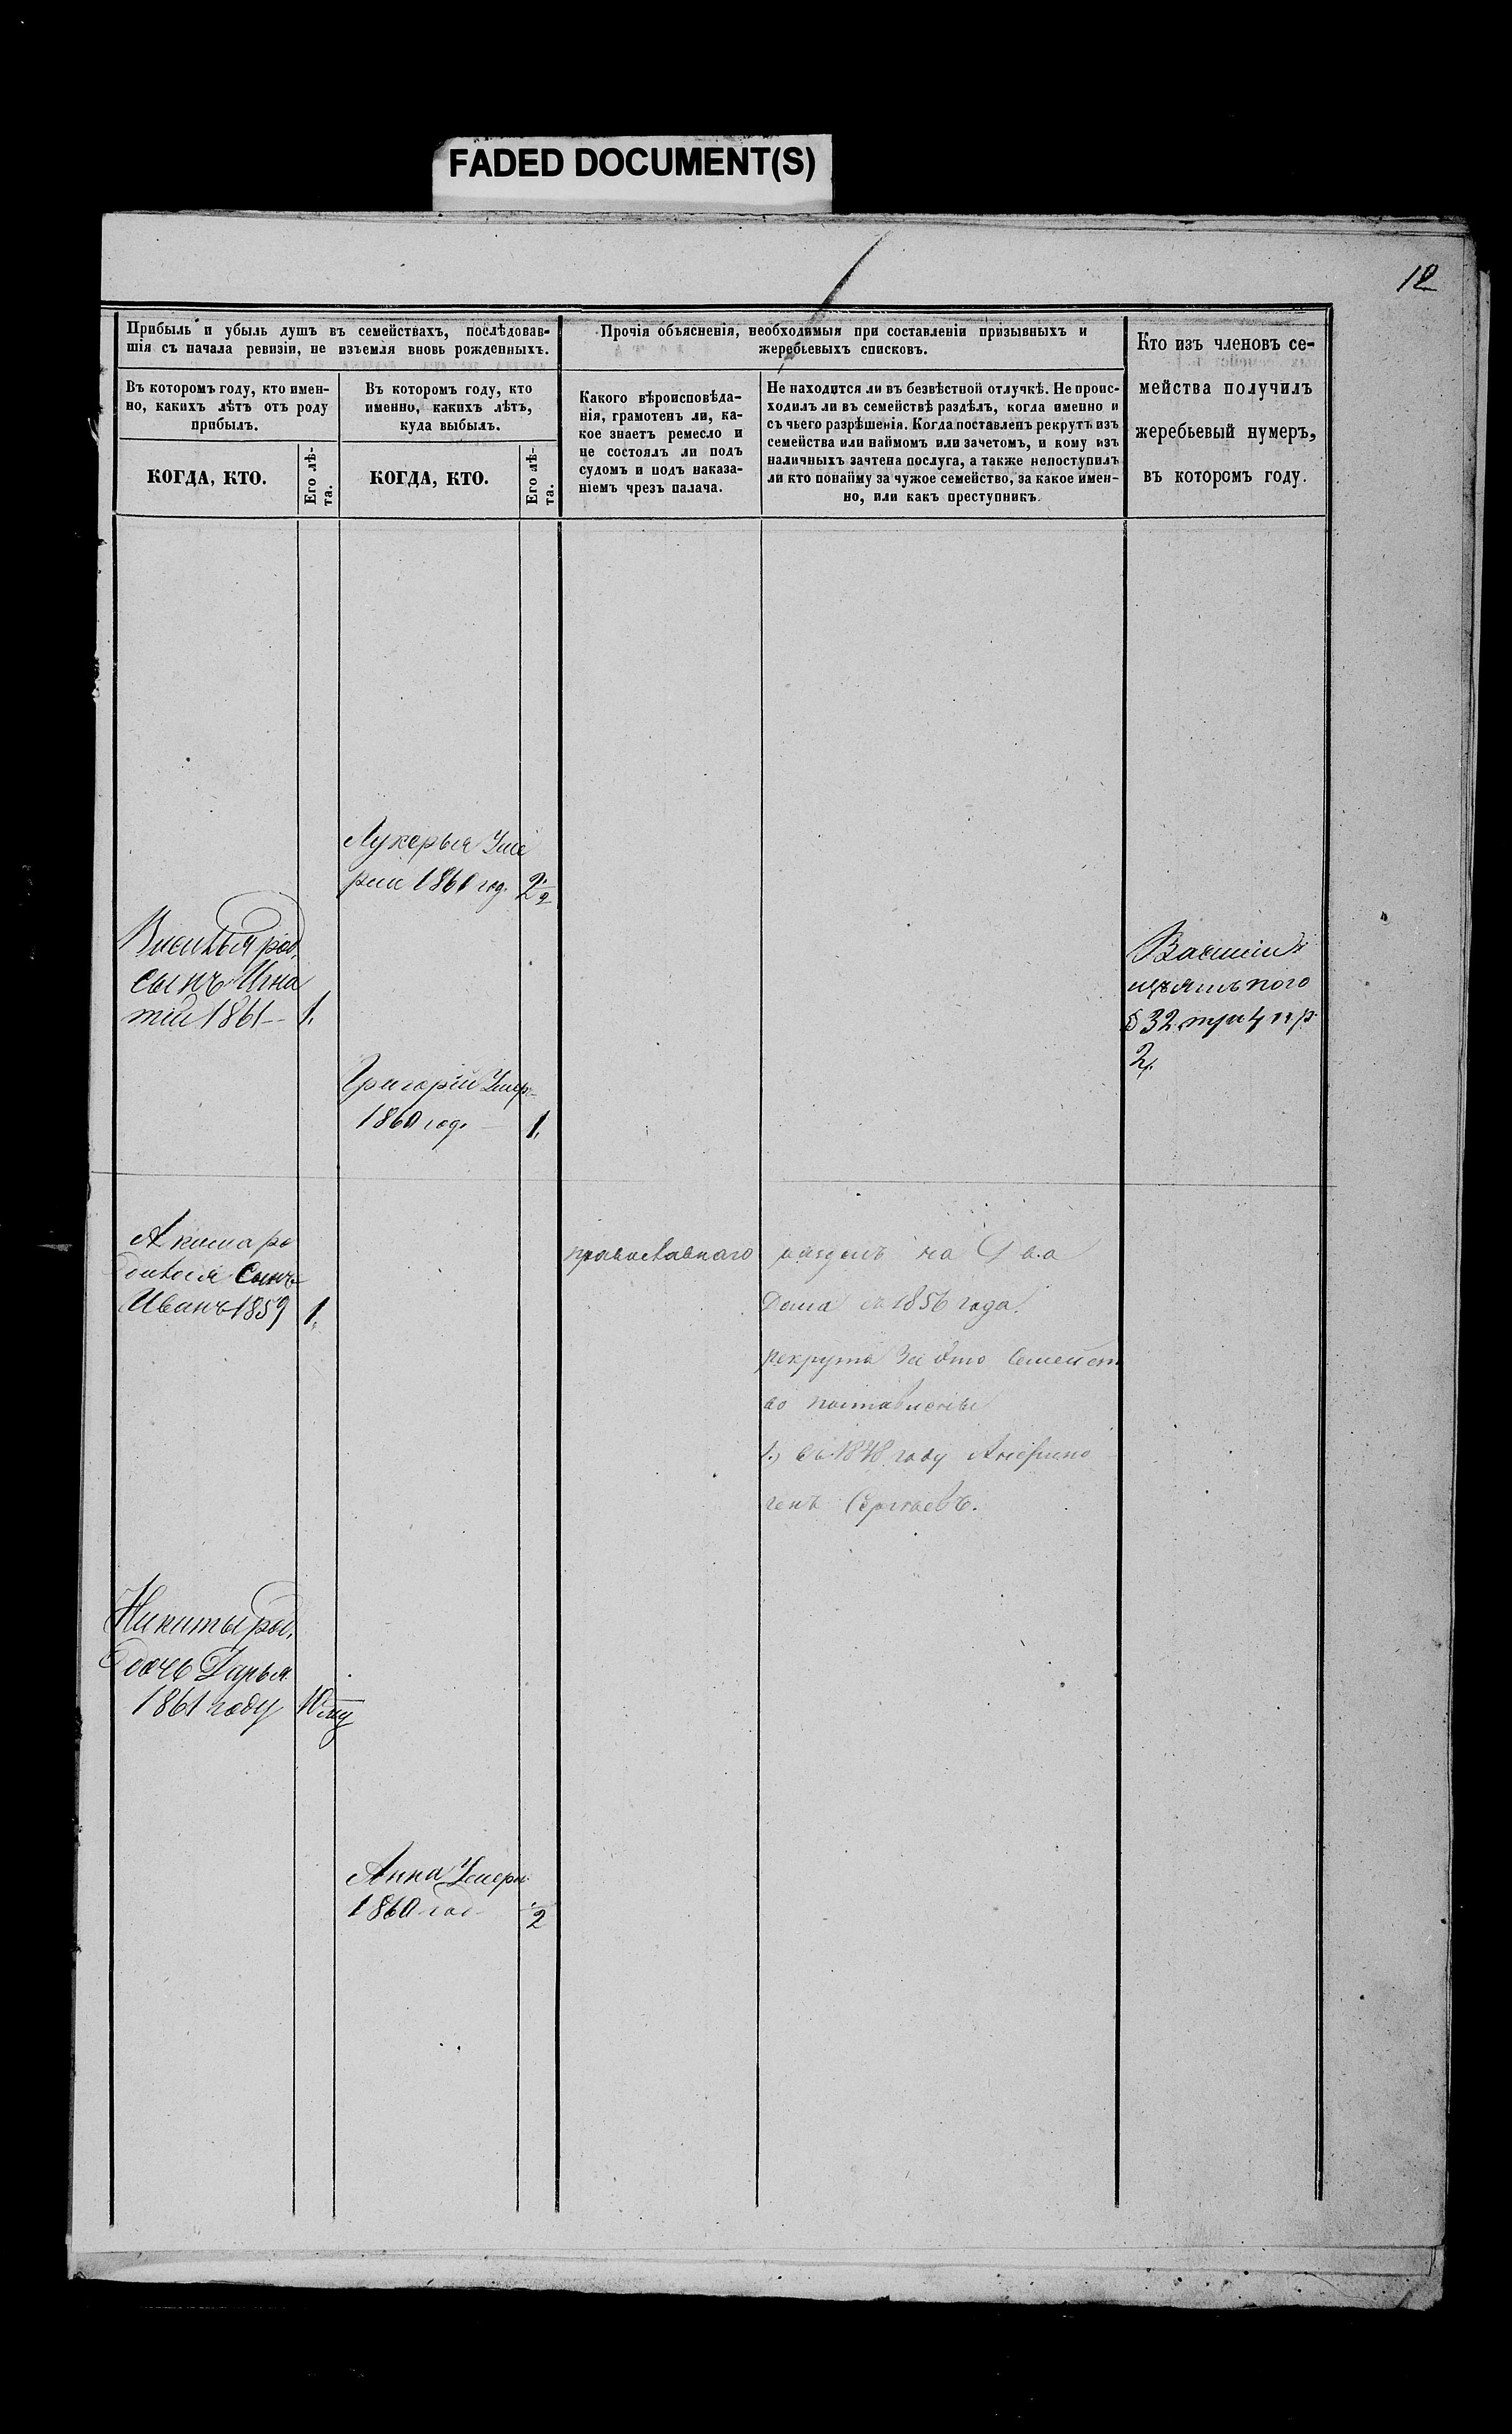 FADED DOCUMENT(S)
12
Прибыль и убыль душъ въ семействахъ, послѣдовав-
шія съ начала ревизіи, не изъемля вновь рожденныхъ.
Въ которомъ году, кто имен-
но, какихъ лѣтъ отъ роду
прибылъ.
КОГДА, КТО.
Его лѣ-
та.
Въ которомъ году, кто
именно, какихъ лѣтъ,
куда выбылъ.
КОГДА, КТО.
Его лѣ-
та.
Прочія объясненія, необходимыя при составленіи призывныхъ и
жеребьевыхъ списковъ.
Какого вѣроисповѣда-
нія, грамотенъ ли, ка-
кое знаетъ ремесло и
не состоялъ ли подъ
судомъ и подъ наказа-
ніемъ чрезъ палача.
Не находится ли въ безвѣстной отлучкѣ. Не проис-
ходилъ ли въ семействѣ раздѣлъ, когда именно и
съ чьего разрѣшенія. Когда поставленъ рекрутъ изъ
семейства или наймомъ или зачетомъ, и кому изъ
наличныхъ зачтена послуга, а также непоступилъ
ли кто понайму за чужое семейство, за какое имен-
но, или какъ преступникъ.
Кто изъ членовъ се-
мейства получилъ
жеребьевый нумеръ,
въ которомъ году.
Лукерья Уме
рли 1861 год. 2
Василья род.
сынъ Игна
тій 1861 1.
Василій
§ 32
2.
Григорій Умер
1860 год. 1.
Акима ро
дился Сынъ
Иванъ 1859 1.
православнаго
раздѣлъ на Два
Дома съ 1856 года.
рекрута За Это Семейст
во поставлены
1.) въ 1848 году
генъ Сергѣевъ.
Никиты род.
дочь Дарья
1861 году
Анна Умерл
1860 год 2